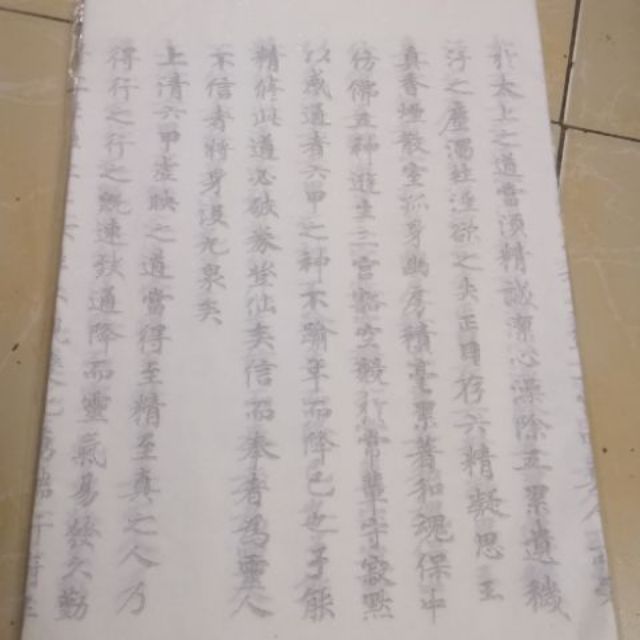 於太上之道當須精誠潔心澡除五累遺穢
汙之塵濁杜淫欲之失正目存六精凝思玉
真香煙散室孤身幽房積毫累著和魂保中
仿佛五神遊生三宮豁空競於常輩守寂默
以感通者六甲之神不踰年而降已也子能
精修此道必破券登仙矣信而奉者為靈人
不信者將身沒九泉矣
上清六甲虛映之道當得至精至真之人乃
得行之行之既速致通降而靈氣易發久勤